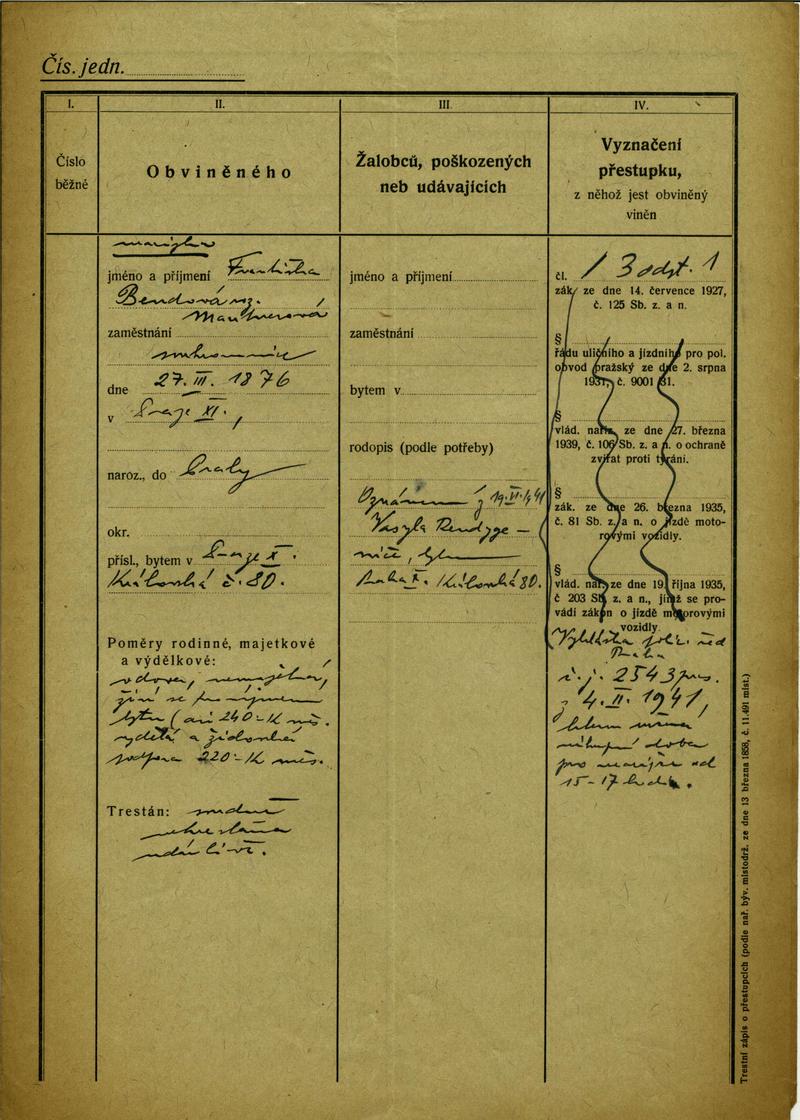 Čís. jedn.
I.
II.
III.
IV.
Číslo
běžné
Obviněného
Žalobců, poškozených
neb udávajících
Vyznačení
přestupku,
z něhož jest obviněný
viněn
jméno a příjmení Františka
Bendová roz.
Mauthnerová
zaměstnání
soukromnice
dne 27. III. 1876
v Praze XI.,
naroz., do Prahy
okr.
přísl., bytem v Praze X.
Královská č. 80.
Poměry rodinné, majetkové
a výdělkové:
vdova, nemajetna,
240.-K měs.
a židovská
podpora 220.-K měs.
Trestán:
udán
jméno a příjmení
zaměstnání
bytem v
rodopis (podle potřeby)
Oznámení z 19.II.1941
Praha X. Královská 80.
čl. 3 odst. 1
zák. ze dne 14. července 1927,
č. 125 Sb. z. a n.
§
řádu uličního a jízdního pro pol.
obvod pražský ze dne 2. srpna
1931, č. 9001/31.
§
vlád. nař. ze dne 27. března
1939, č. 106 Sb. z. a n. o ochraně
zvířat proti týrání.
§
zák. ze dne 26. března 1935,
č. 81 Sb. z. a n. o jízdě moto-
rovými vozidly.
§
vlád. nař. ze dne 19. října 1935,
č 203 Sb. z. a n., jímž se pro-
vádí zákon o jízdě motorovými
vozidly.
Vyhláška pol. řed
Praha
č. j. 2543 pres.
z 4. II. 1941,
nákupní doba
pro od
15-17 hod.
Trestní zápis o přestupcích (podle nař. býv. místodrž. ze dne 13 března 1858, č. 11.491 míst.)